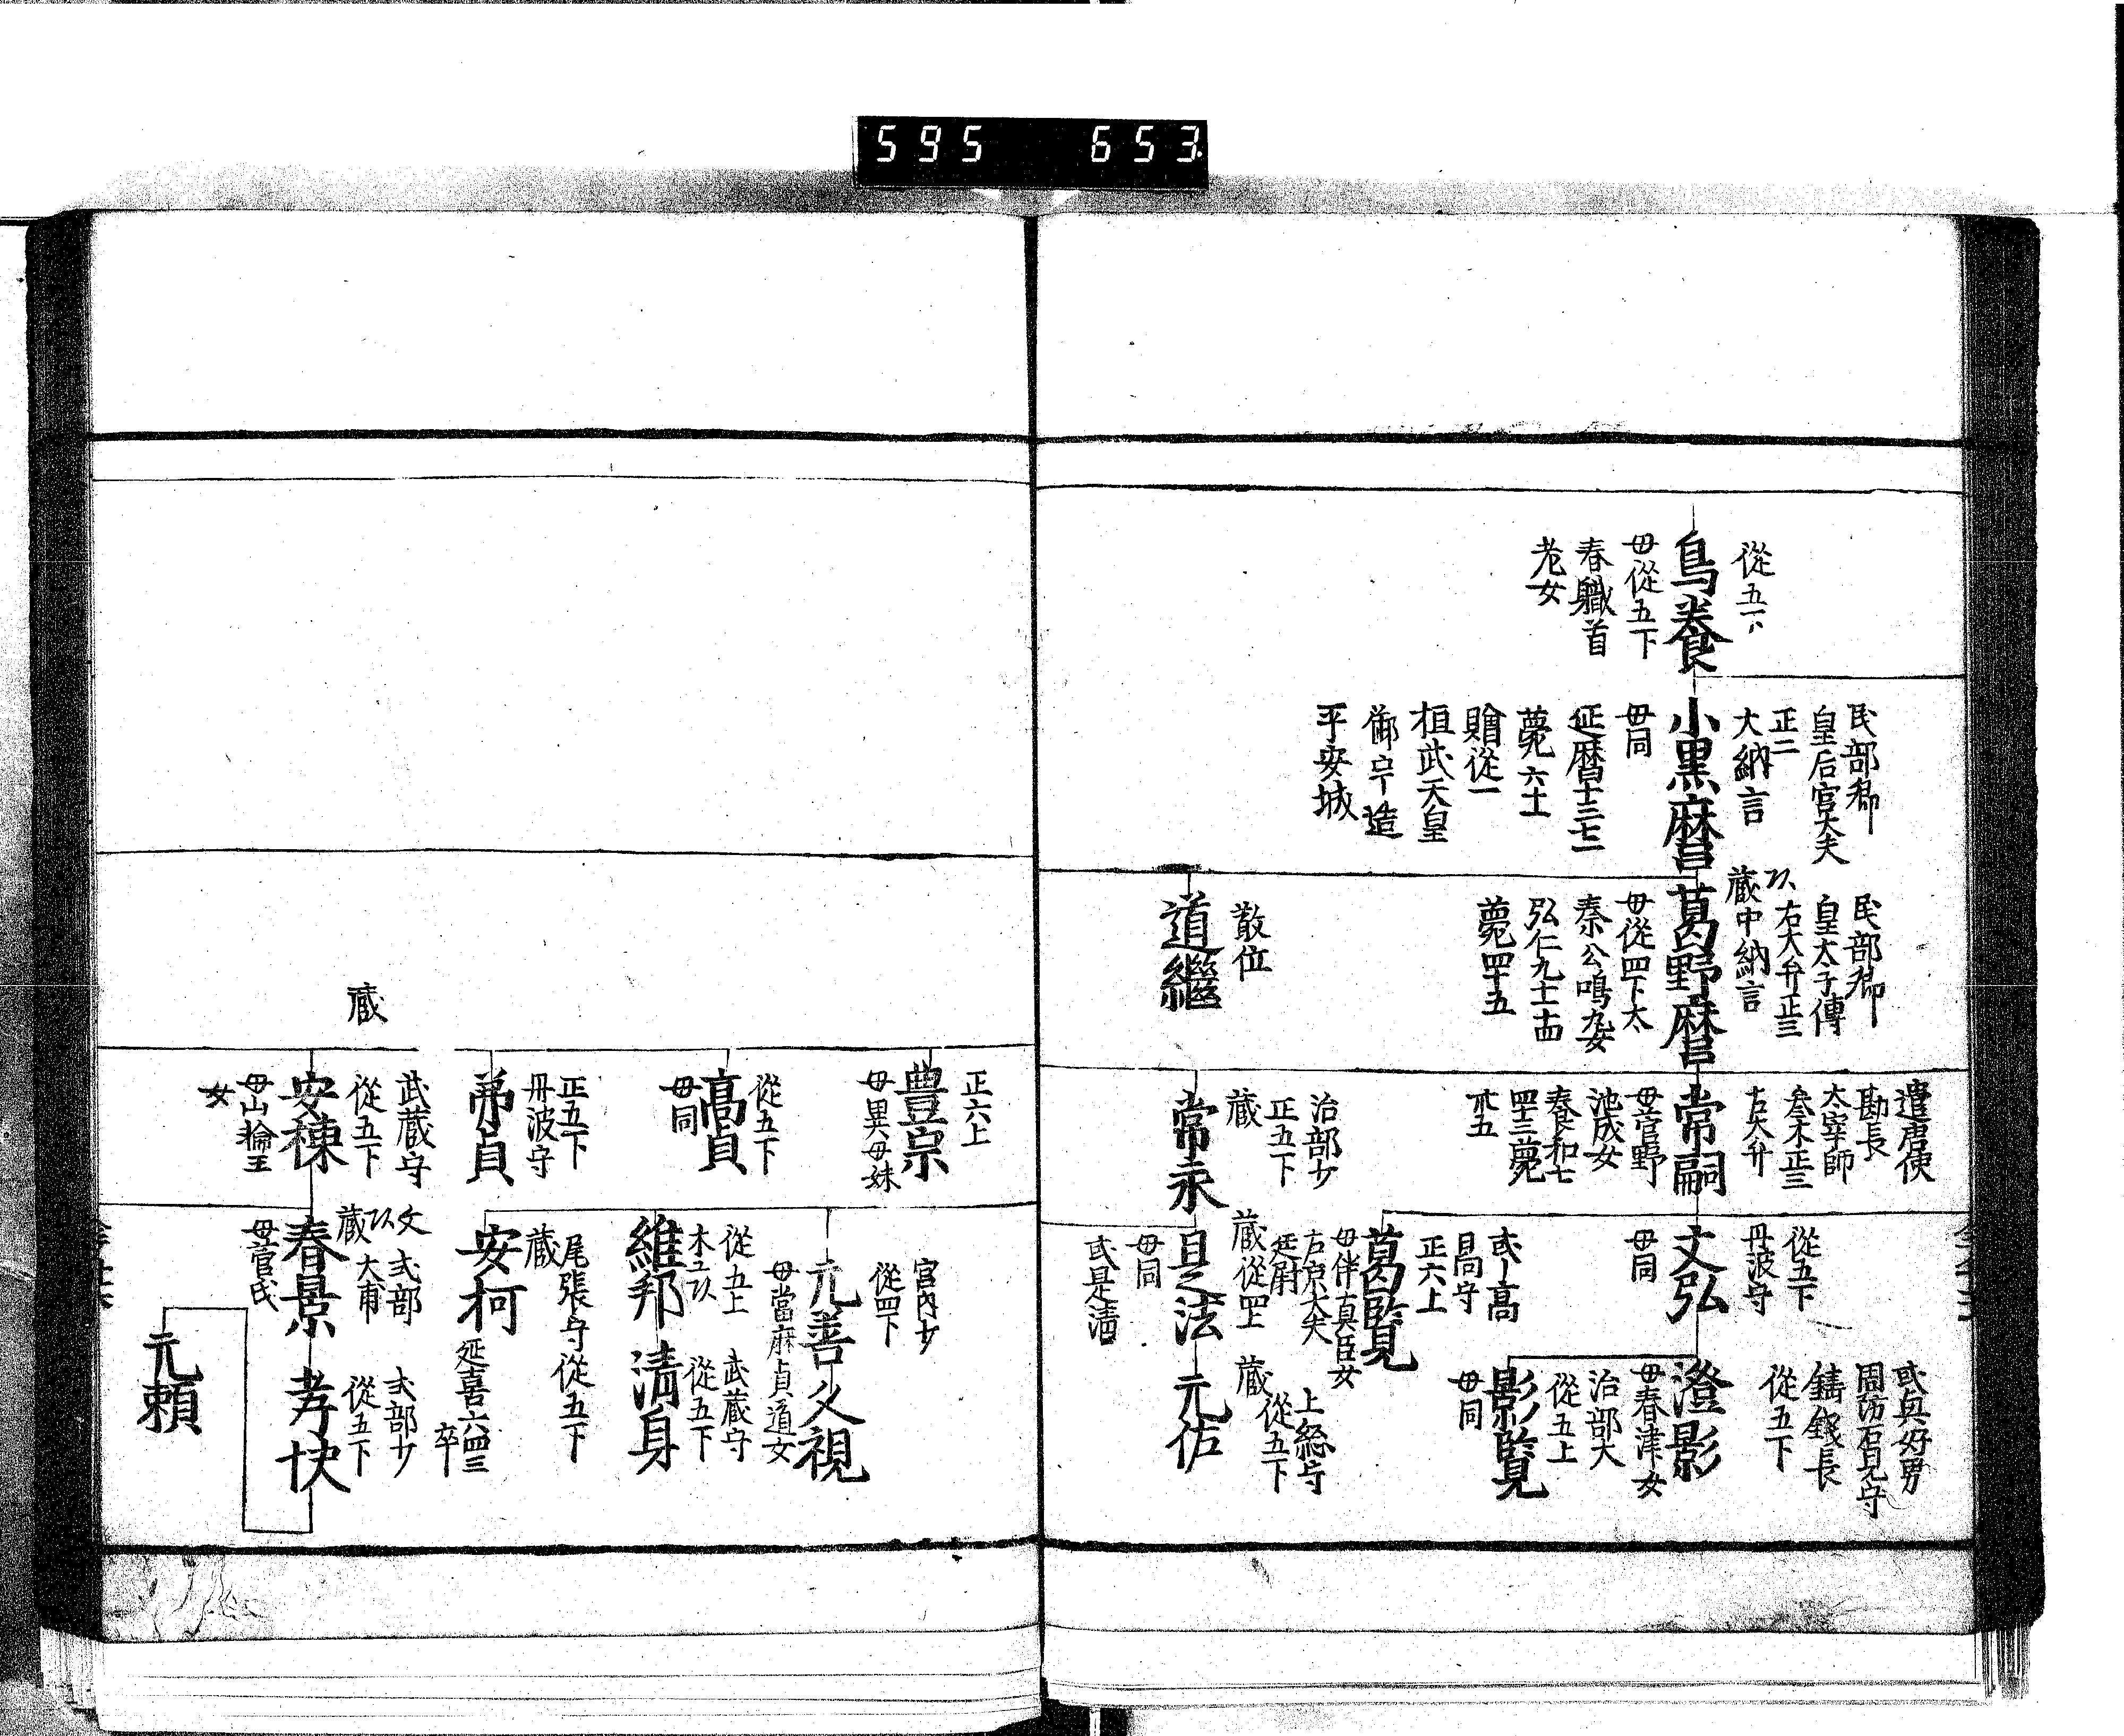 595 653
從五下
鳥養
母從五下
春職首
老女
民部卿
皇后宮大夫
正二
大納言
小黒麿
母同
延暦十三七一
薨六十二
贈從一
桓武天皇
御宇造
平安城
民部卿
皇太子傳
右大弁正三
蔵中納言
葛野麿
母從四下太
秦公嶋女
弘仁九十一十四
薨四十五
散位
道繼
遣唐使
勘長
太宰師
参木正三
右大弁
常嗣
母菅野
池成女
養和七
四廿三薨
四十五
治部少
正五下
蔵
常永
從五下
丹波守
文弘
母同
或高
日向守
正六上
葛覧
母伴真臣女
右京大夫
廷尉
蔵從四上
是法
母同
或是清
或興好男
周防石見守
鑄錢長
從五下
澄影
母春津女
治部大
從五上
影覧
母同
上総守
從五下
蔵
元佐
正六上
豊宗
母異母妹
從五下
高貞
母同
正五下
丹波守
弟貞
蔵
武蔵守
從五下
安棟
母山輪王
女
宮内少
從四下
元善
母當麻貞道女
父視
從五上
木工
維邦
武蔵守
從五下
清身
尾張守從五下
蔵
安柯
延喜六四三
卒
文
式部
大甫
蔵
春景
母菅氏
式部少
從五下
孝快
元頼